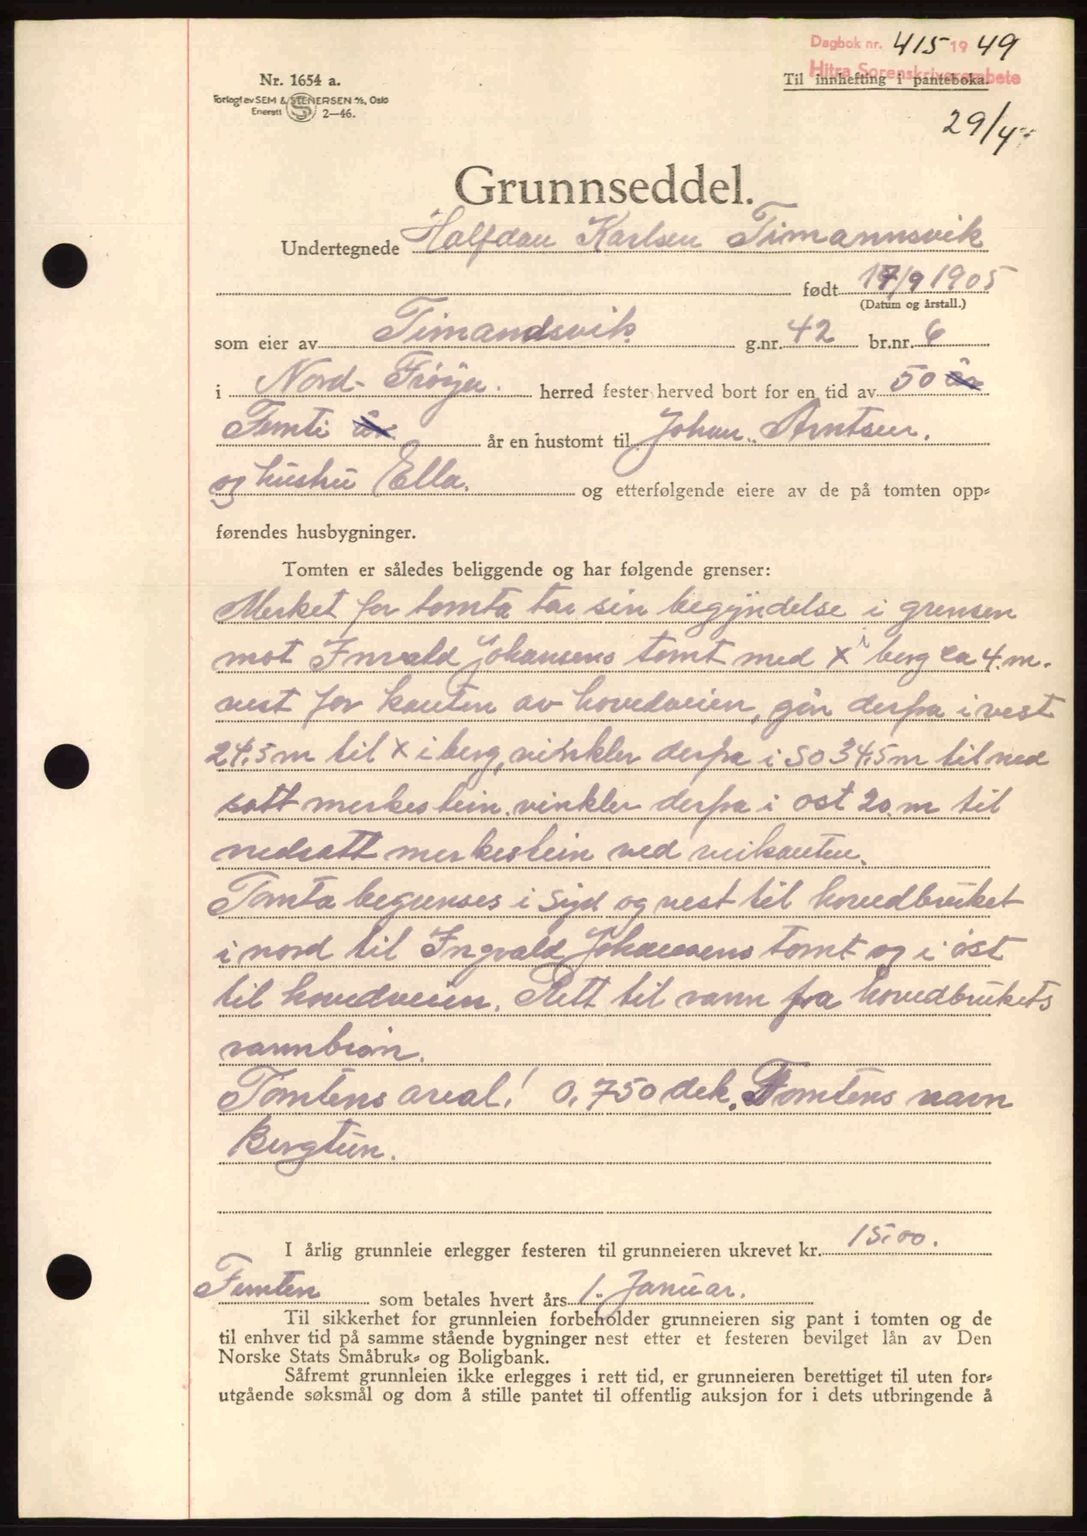 Dagbok nr. 415 1949
Hitra Sorenskriverembete
Nr. 1654 a.
Til innhefting i panteboka.
Forlagt av SEM & STENERSEN A/S, Oslo
Enerett S 2—46.
29/4
Grunnseddel.
Undertegnede Halfdan Karlsen Timannsvik
født 17/9 1905
(Datum og årstall.)
som eier av Timandsvik g.nr. 42 br.nr. 6
i Nord-Frøya. herred fester herved bort for en tid av 50 år
Femti år år en hustomt til Johan Arntsen.
og hustru Ella. og etterfølgende eiere av de på tomten opp-
førendes husbygninger.
Tomten er således beliggende og har følgende grenser:
Merket for tomta tar sin begyndelse i grensen
mot Invald Johansens tomt med X i berg ca 4.m.
vest for kanten av hovedveien, går derfra i vest
24,5m til X i berg, vinkler derfra i SO 34,5m til ned
satt merkestein, vinkler derfra i ost 20.m til
nedsatt merkestein ved veikanten.
Tomta begrenses i Syd og vest til hovedbruket
i nord til Ingvald Johansens tomt og i øst
til hovedveien. Rett til vann fra hovedbrukets
vannbrøn.
Tomtens areal! 0,750 dek. Tomtens navn
Bergtun.
I årlig grunnleie erlegger festeren til grunneieren ukrevet kr. 15,00.
Femten som betales hvert års 1. Januar.
Til sikkerhet for grunnleien forbeholder grunneieren sig pant i tomten og de
til enhver tid på samme stående bygninger nest etter et festeren bevilget lån av Den
Norske Stats Småbruk- og Boligbank.
Såfremt grunnleien ikke erlegges i rett tid, er grunneieren berettiget til uten for-
utgående søksmål og dom å stille pantet til offentlig auksjon for i dets utbringende å